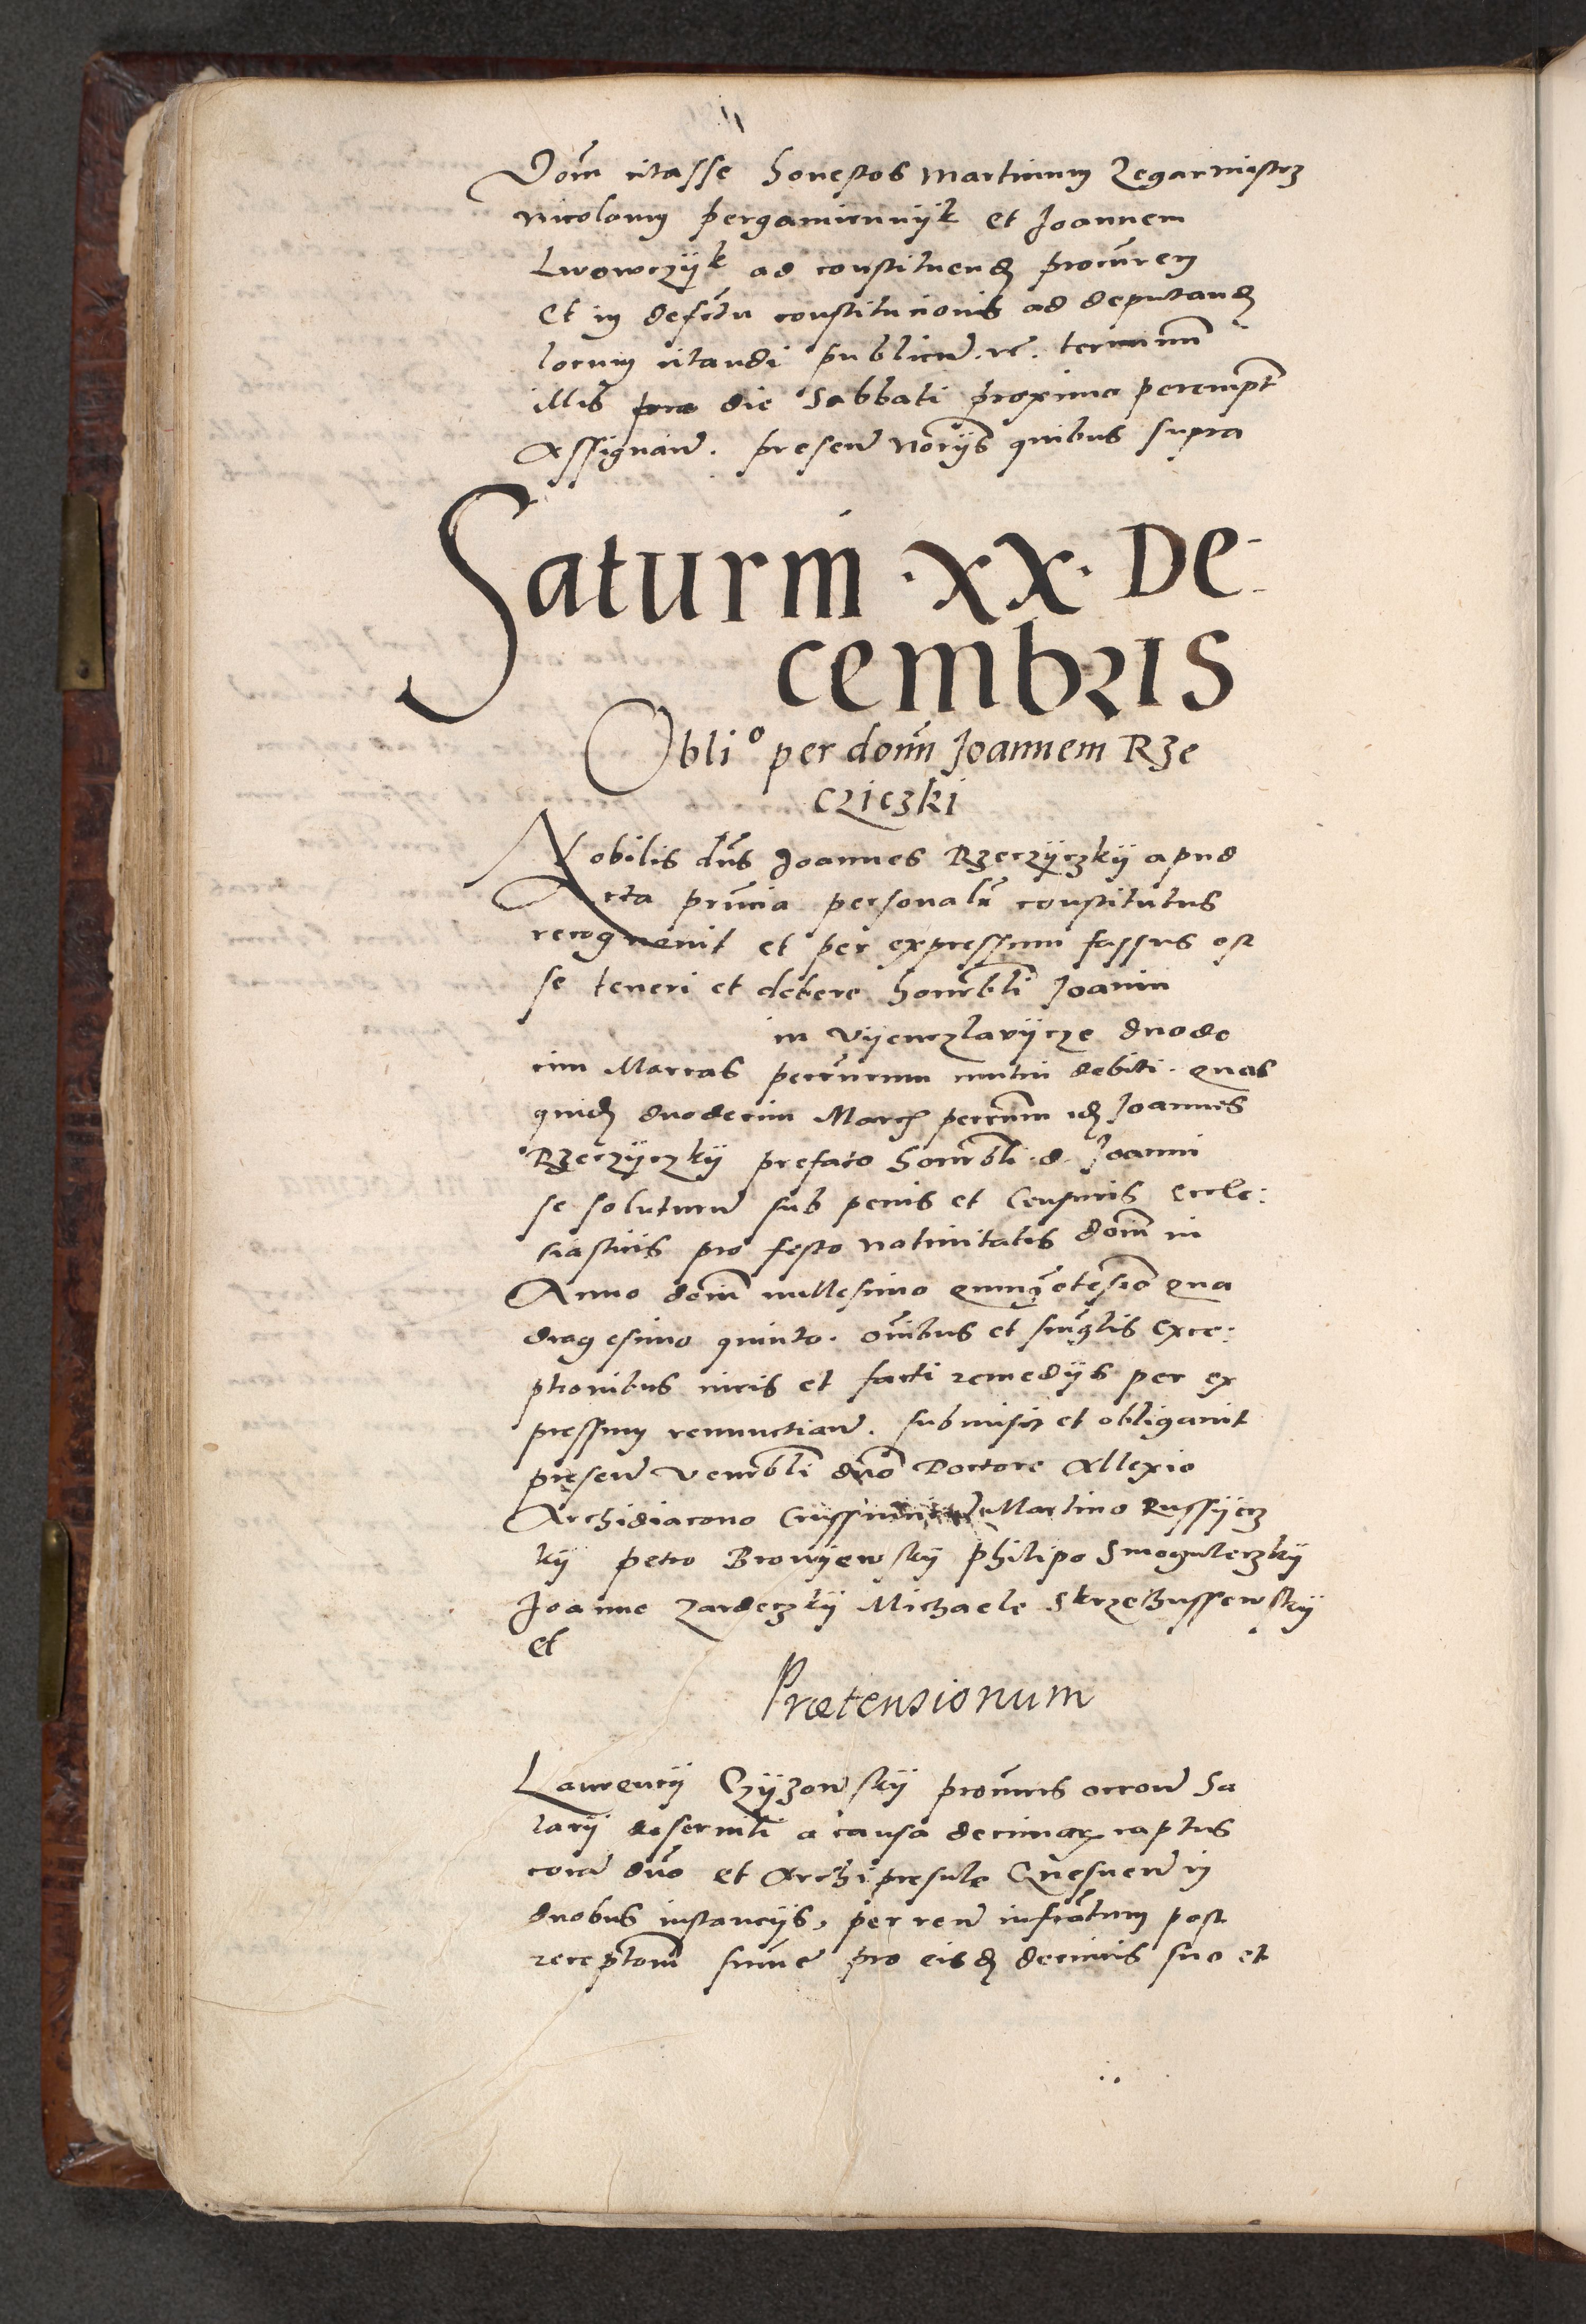 Dom citasse honestos Martinum Zegarmistrz
Nicolaum pergamiennijk et Joannem
Lwowczyk ad constituend procurem
Et in defectu constitucionis ad deputand
locum citandi publicum rc. terminum
illis pro die Sabbati proximo perempt
Assignavit. presen Notrijs quibus supra
Saturni .XX. De-
cembris
Oblio per domin Joannem Rze
cziczki
Nobilis dns Joannes Rzeczyczkij apud
Acta prncia personalr constitutus
recognovit et per expressum fassus est
se teneri et debere honorbli Joanni
in Vijenczlavijcze duode
cim Marcas peccuniarum mutui debiti. quas
quid duodecim Marcas peccuniarum id Joannes
Rzeczyczkij prefato honorbli d. Joanni
se soluturum sub penis et Censuris Eccle:
siasticis pro festo nativitatis domini in
Anno domini millesimo quingetesimo qua
dragesimo quinto. omibus et singlis Exce:
ptionibus iuris et facti remedijs per ex
pressum renunctian. submisit et obligavit
presen Venerbli dno Doctore Allexio
Archidiacono Crussvicien Martino Russijcz
kij petro Bronijewskij philipo Smoguleczkij
Joanne Zardeczkij Michaele Skrzethussewskij
et
Prætensionum
Laurencij Czijzowskij procuris occone Sa
larij deserviti a causa decimar captus
coram dno et Archipresule Gnesnen in
duobus instancijs, per ren infrascriptum post
receptom summe pro eisd decimis suo et